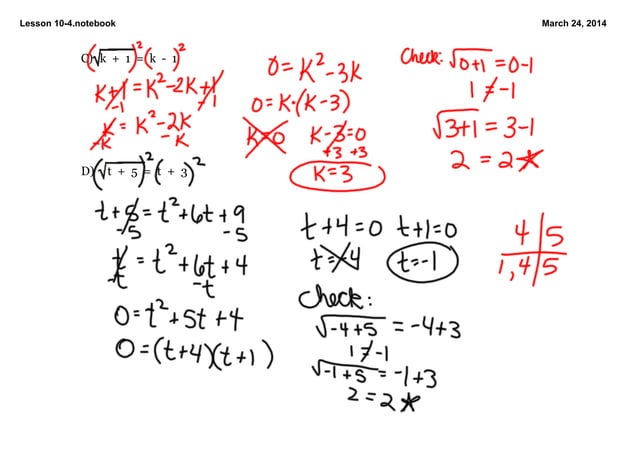 Lesson 10-4.notebook
March 24, 2014
C) (√k + 1)² = (k - 1)²
k+1 = k²-2k+1
-1 -1
k = k²-2k
-k -k
0 = k²-3k
0 = k·(k-3)
k=0 k-3=0
+3 +3
k=3
Check: √0+1 = 0-1
1 ≠ -1
√3+1 = 3-1
2 = 2*
D) (√t + 5)² = (t + 3)²
t+5 = t²+6t+9
-5 -5
t = t²+6t+4
-t -t
0 = t²+5t+4
0 = (t+4)(t+1)
t+4=0 t+1=0
t=-4 t=-1
Check:
√-4+5 = -4+3
1 ≠ -1
√-1+5 = -1+3
2 = 2*
4 | 5
1,4 | 5